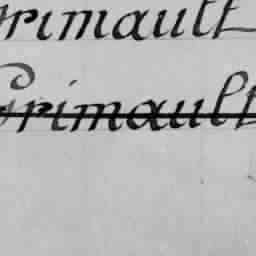 Grimault
Grimault